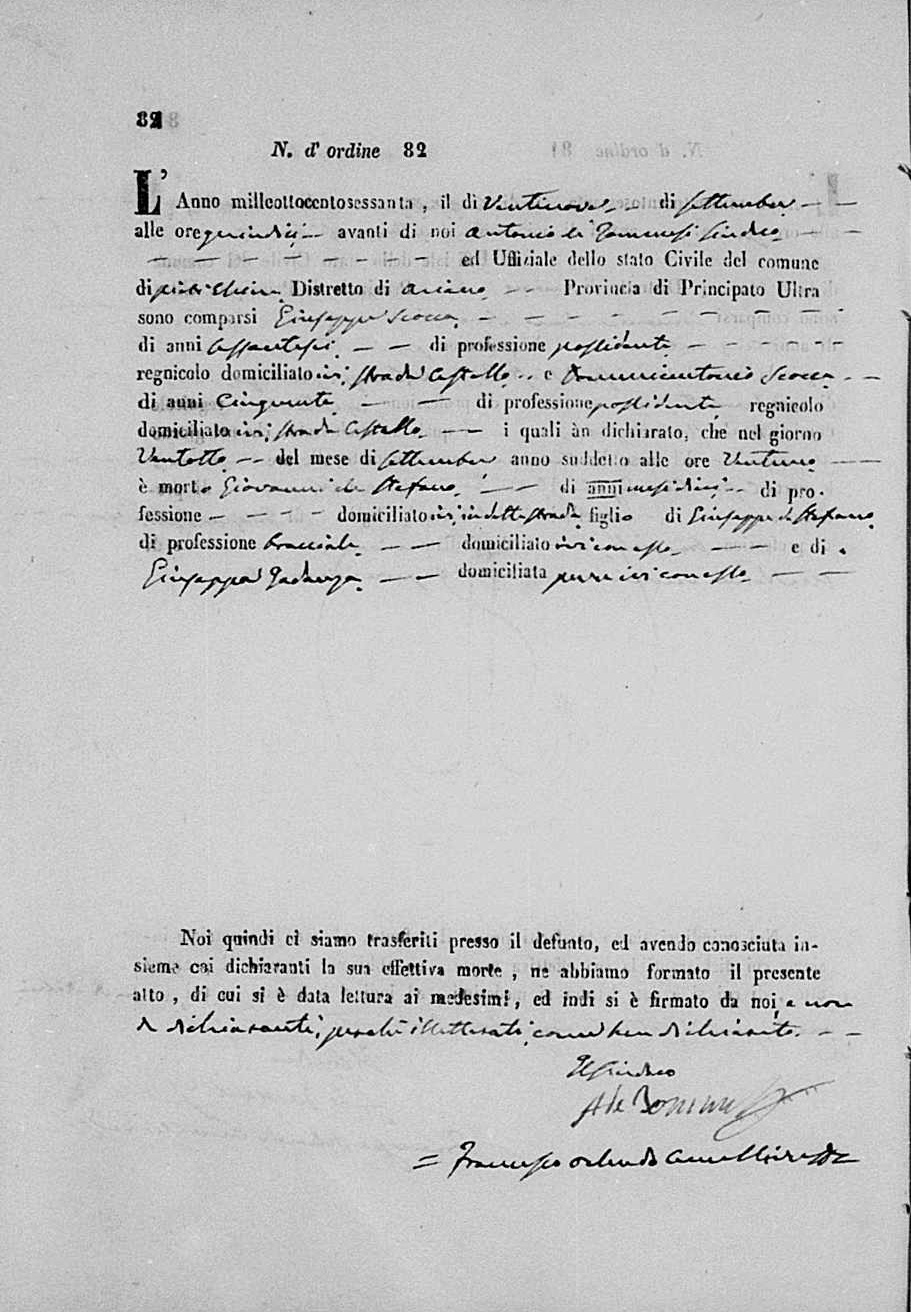 82
N. d' ordine 82
L' Anno milleottocentosessanta, il dì Ventinove di Settembre
alle ore quindici avanti di noi Antonio de Tommasi Sindaco
ed Uffiziale dello stato Civile del comune
di Distretto di Ariano Provincia di Principato Ultra
sono comparsi Giuseppe Scocca
di anni Sessantasei di professione possidente
regnicolo domiciliato ivi, strada Castello e Domenicantonio Scocca
di anni Cinquanta di professione possidente regnicolo
domiciliato ivi, strada Castello i quali àn dichiarato, che nel giorno
Ventotto del mese di Settembre anno suddetto alle ore Ventuno
è morto Giovanni de Stefano di anni mesi dieci di pro-
fessione domiciliato ivi, in detta strada figlio di Giuseppe de Stefano
di professione bracciale domiciliato ivi con esso e di
Giuseppa domiciliata pure ivi con esso
Noi quindi ci siamo trasferiti presso il defunto, ed avendo conosciuta in-
sieme coi dichiaranti la sua effettiva morte, ne abbiamo formato il presente
atto, di cui si è data lettura ai medesimi, ed indi si è firmato da noi, e non
da dichiaranti, perchè illetterati, come han dichiarato.
Il Sindaco
A de Tommasi
= Francesco Orlando Cancelliere